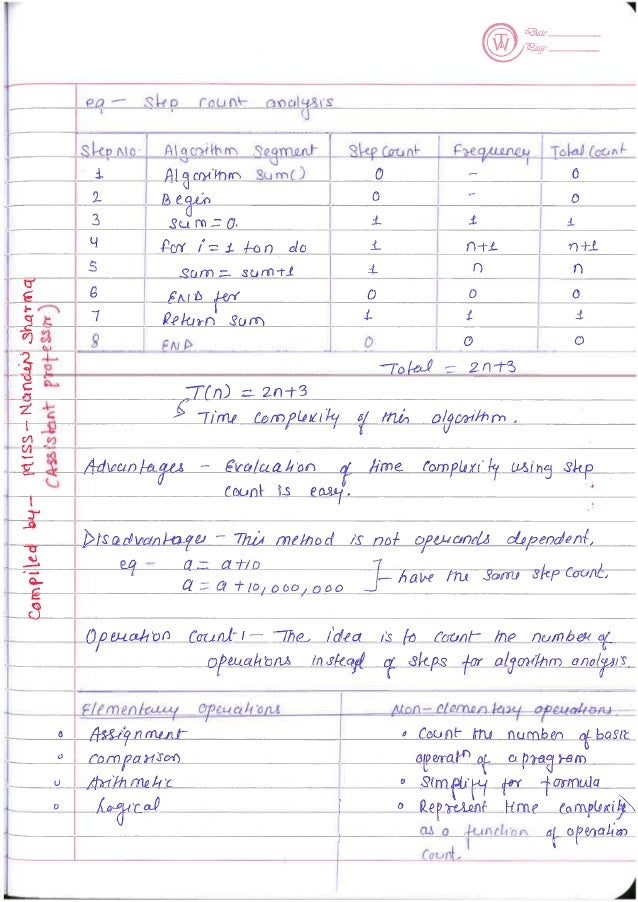 TW
Date
Page
eg - Step count analysis
Step No. Algorithm Segment Step Count Frequency Total Count
1 Algorithm Sum() 0 - 0
2 Begin 0 - 0
3 sum = 0. 1 1 1
4 for i = 1 to n do 1 n+1 n+1
5 sum = sum+1 1 n n
6 END for 0 0 0
7 Return sum 1 1 1
8 END 0 0 0
Total = 2n+3
T(n) = 2n+3
Time Complexity of this algorithm.
Advantages - Evaluation of time complexity using step
count is easy.
Disadvantages - This method is not operands dependent,
eg - a = a+10
a = a+10,000,000 have the same step count.
Operation Count:- The idea is to count the number of
operations instead of steps for algorithm analysis.
Elementary operations Non-elementary operations
Assignment • Count the number of basic
comparison operatn of a program
Arithmetic • Simplify for formula
Logical • Represent time complexity
as a function of operation
count.
Compiled by - MISS - Nandini Sharma
(Assistant professor)